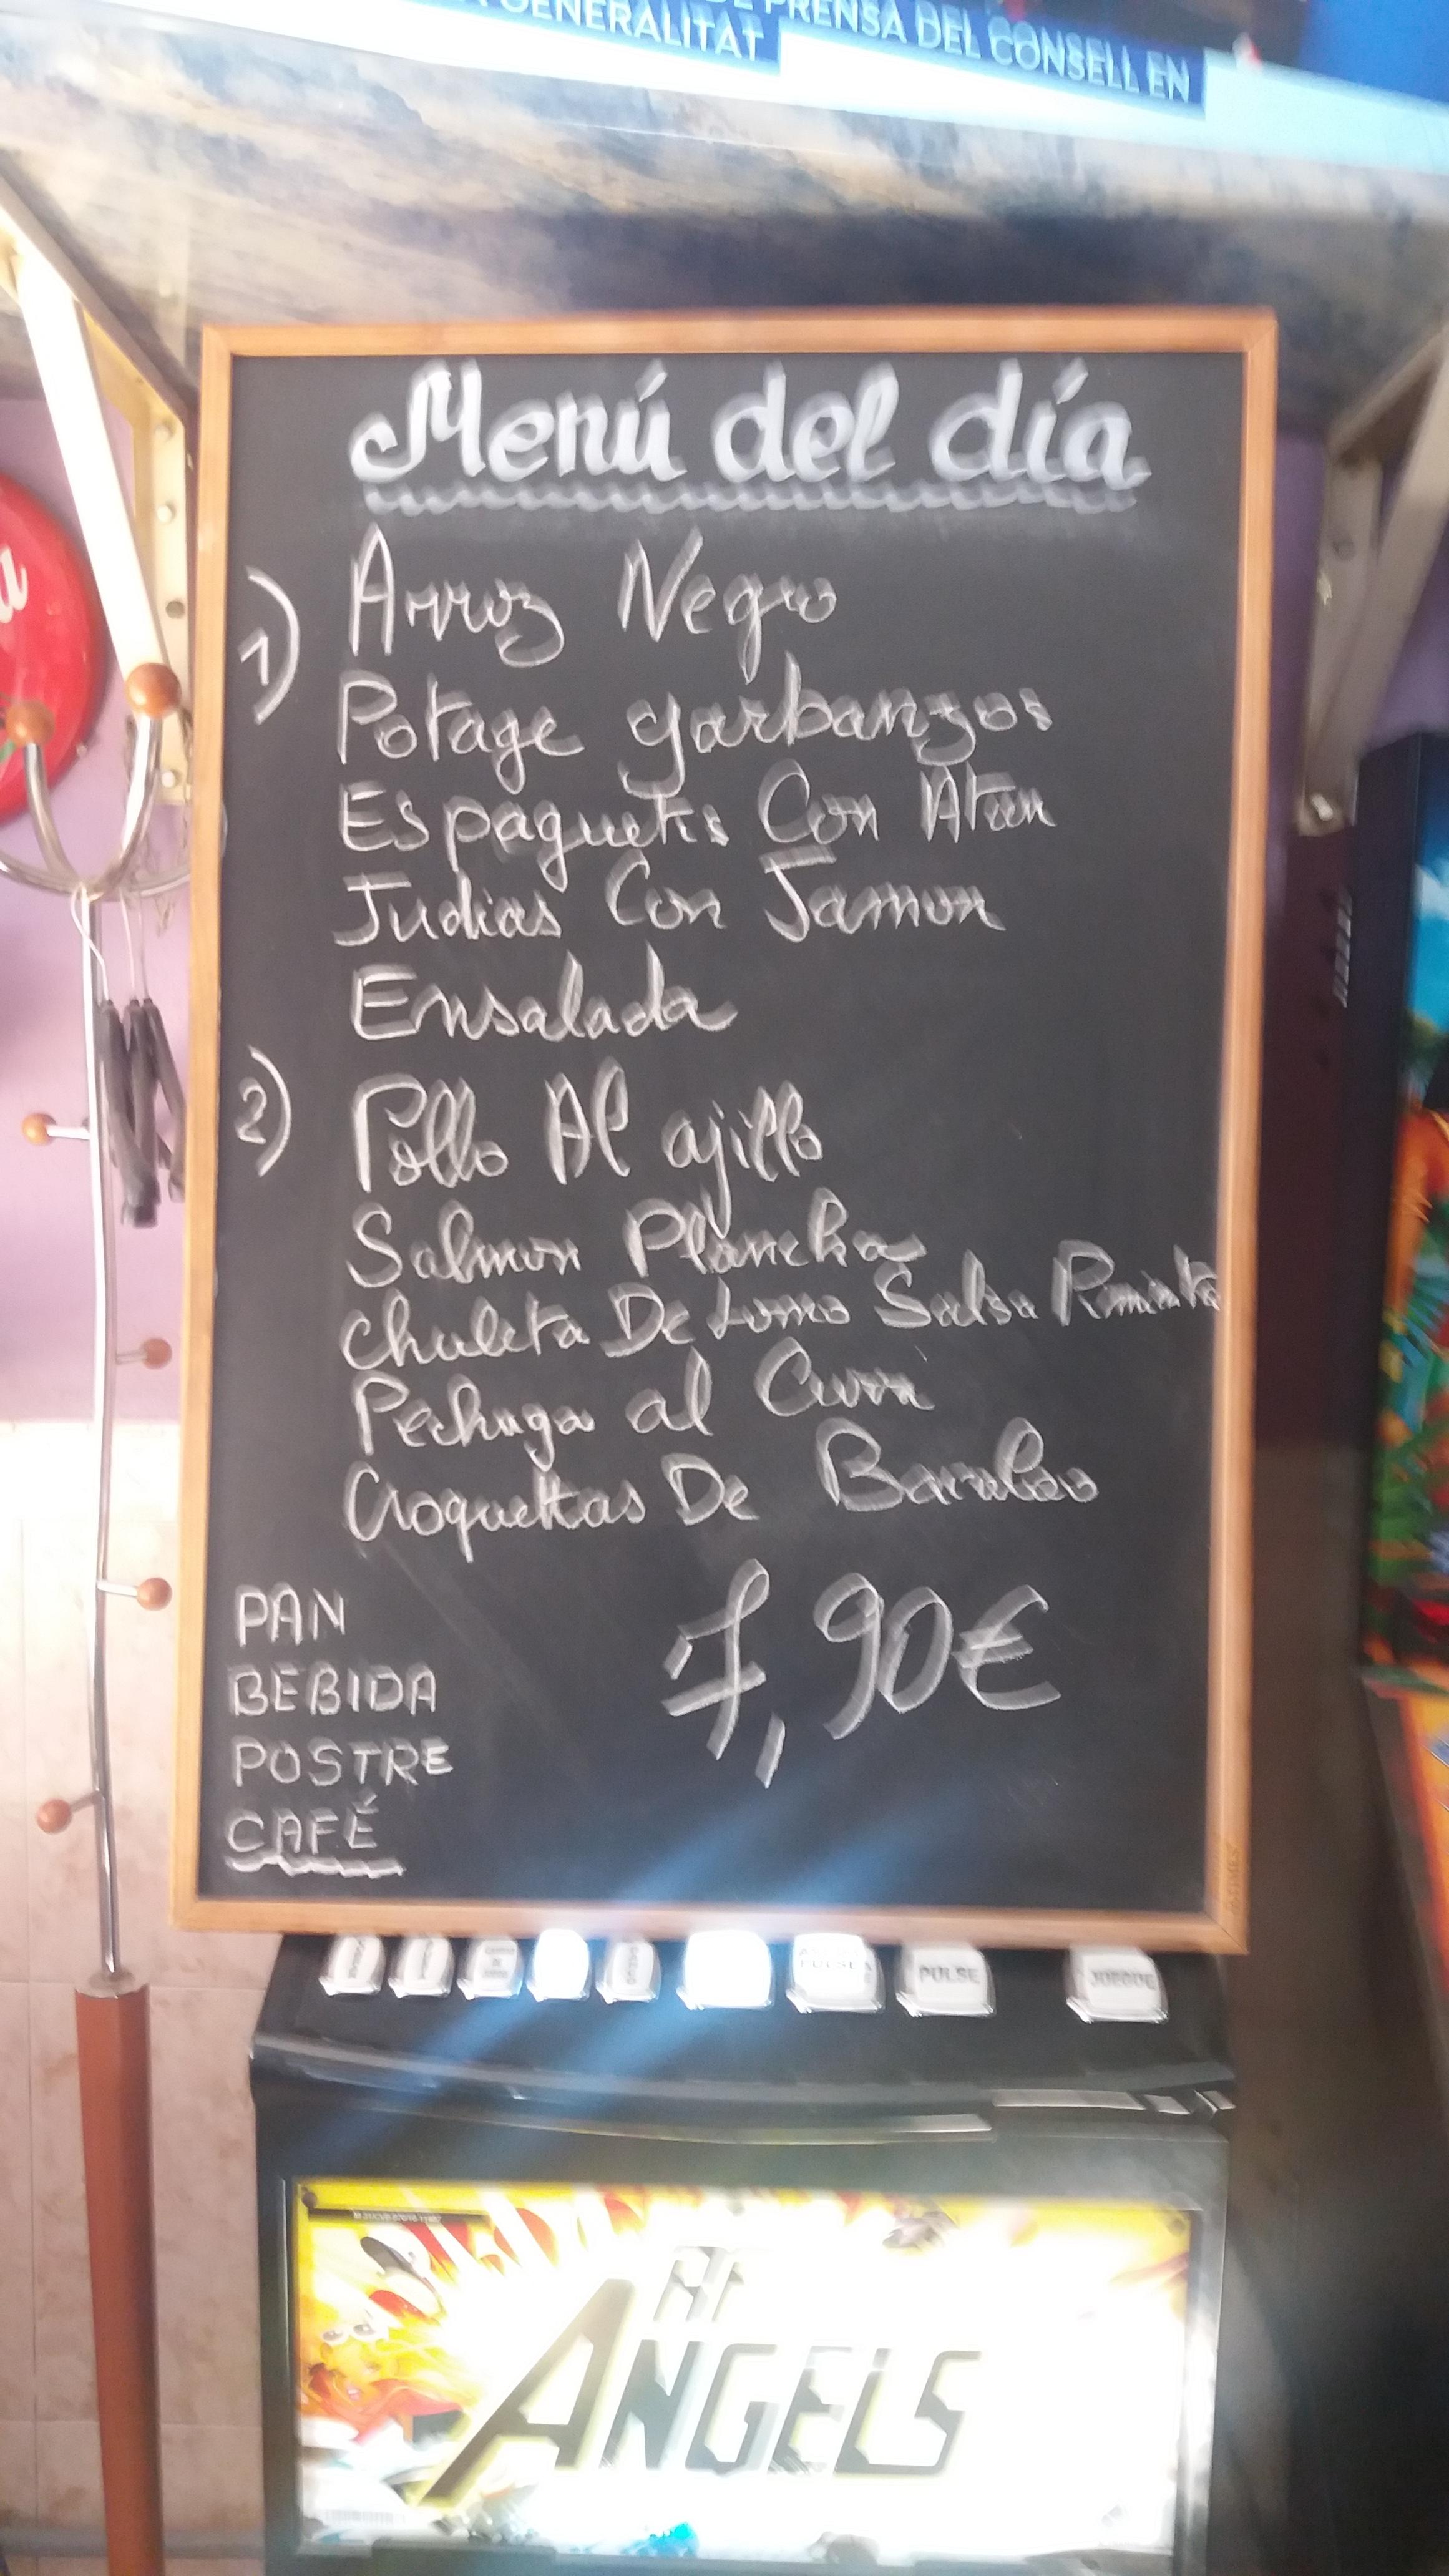 GENERALITAT
PRENSA DEL CONSELL EN
Menú del día
1) Arroz Negro
Potage garbanzos
Espaguetis Con Atun
Judias Con Jamon
Ensalada
2) Pollo Al ajillo
Salmon Plancha
Chuleta De Lomo Salsa Pimienta
Pechuga al Curri
Croquettas De Bacalao
PAN
BEBIDA
POSTRE
CAFÉ
7,90€
PULSE
JUEGUE
ANGELS